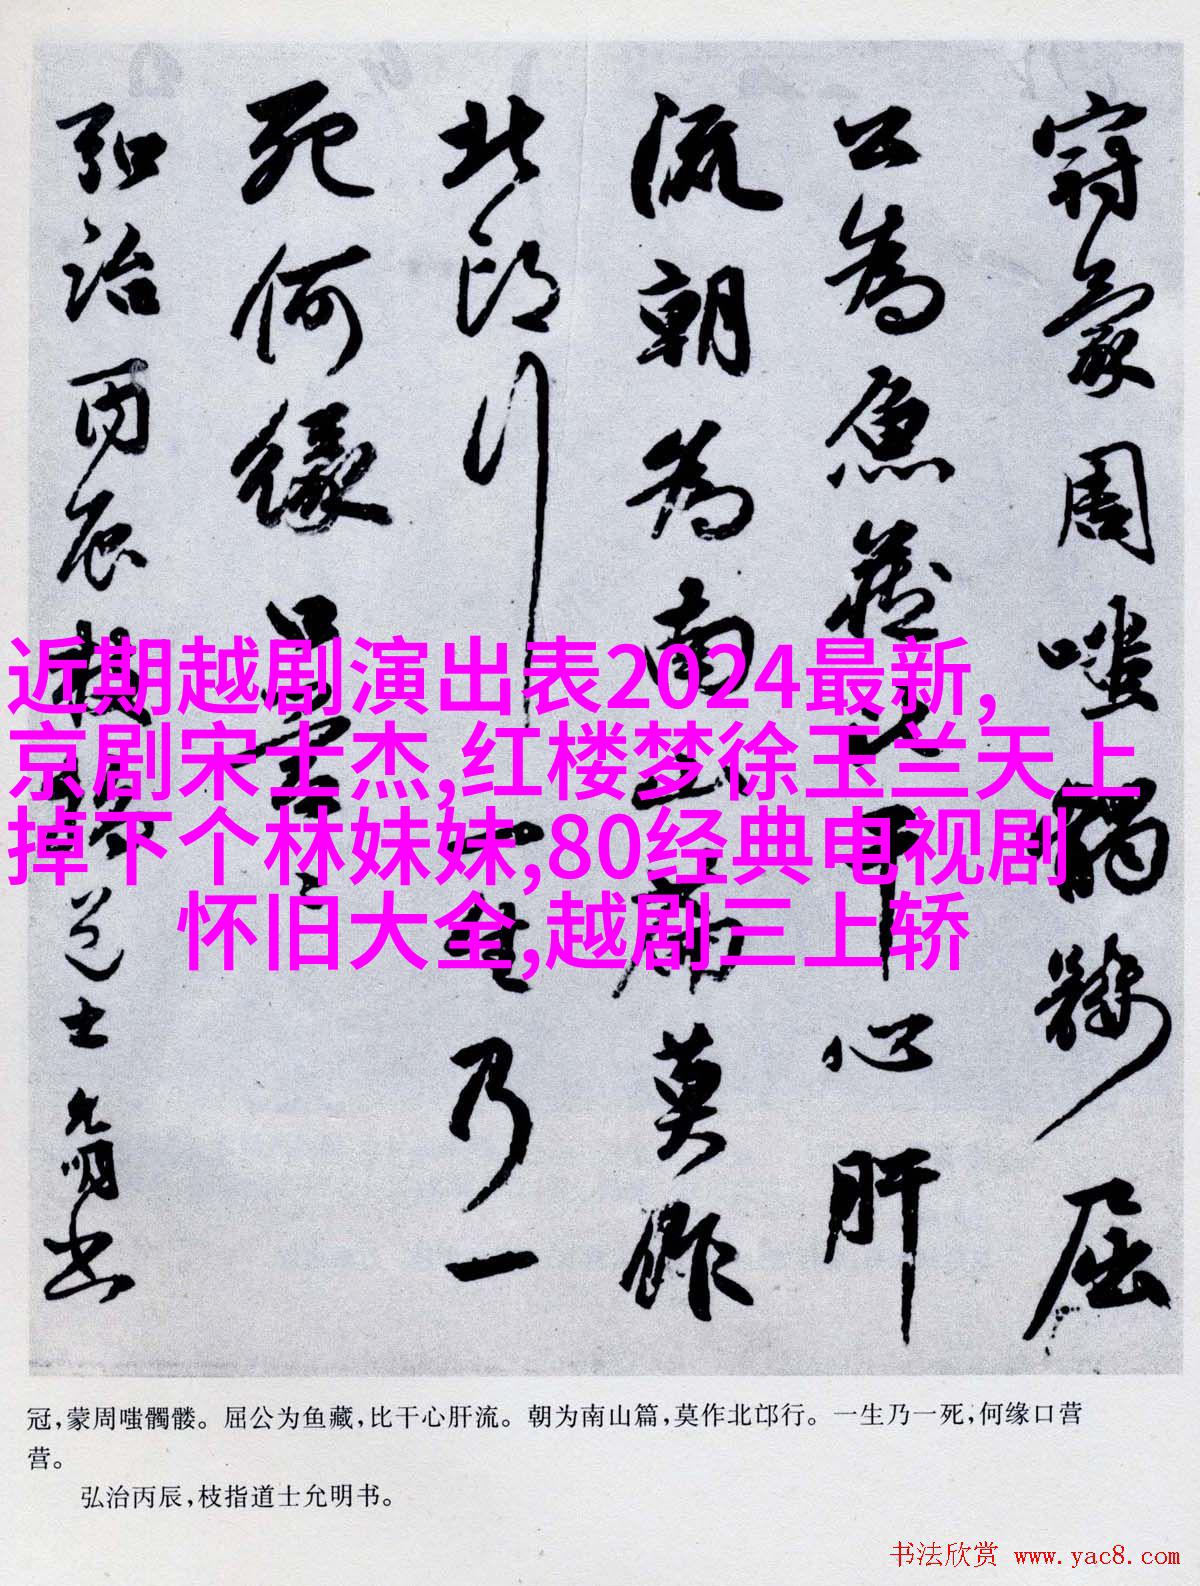 冠蒙周嗤髑髅屈
公为鱼藏比干心肝
流朝为南山篇莫作
北邙行一生乃一
死何缘口营营
弘治丙辰枝指道士允明书
近期越剧演出表2024最新,
京剧宋士杰,红楼梦徐玉兰天上
掉下个林妹妹,80经典电视剧
怀旧大全,越剧三上轿
冠，蒙周嗤髑髅。屈公为鱼藏，比干心肝流。朝为南山篇，莫作北邙行。一生乃一死，何缘口营
营。
弘治丙辰，枝指道士允明书。
书法欣赏 www.yac8.com